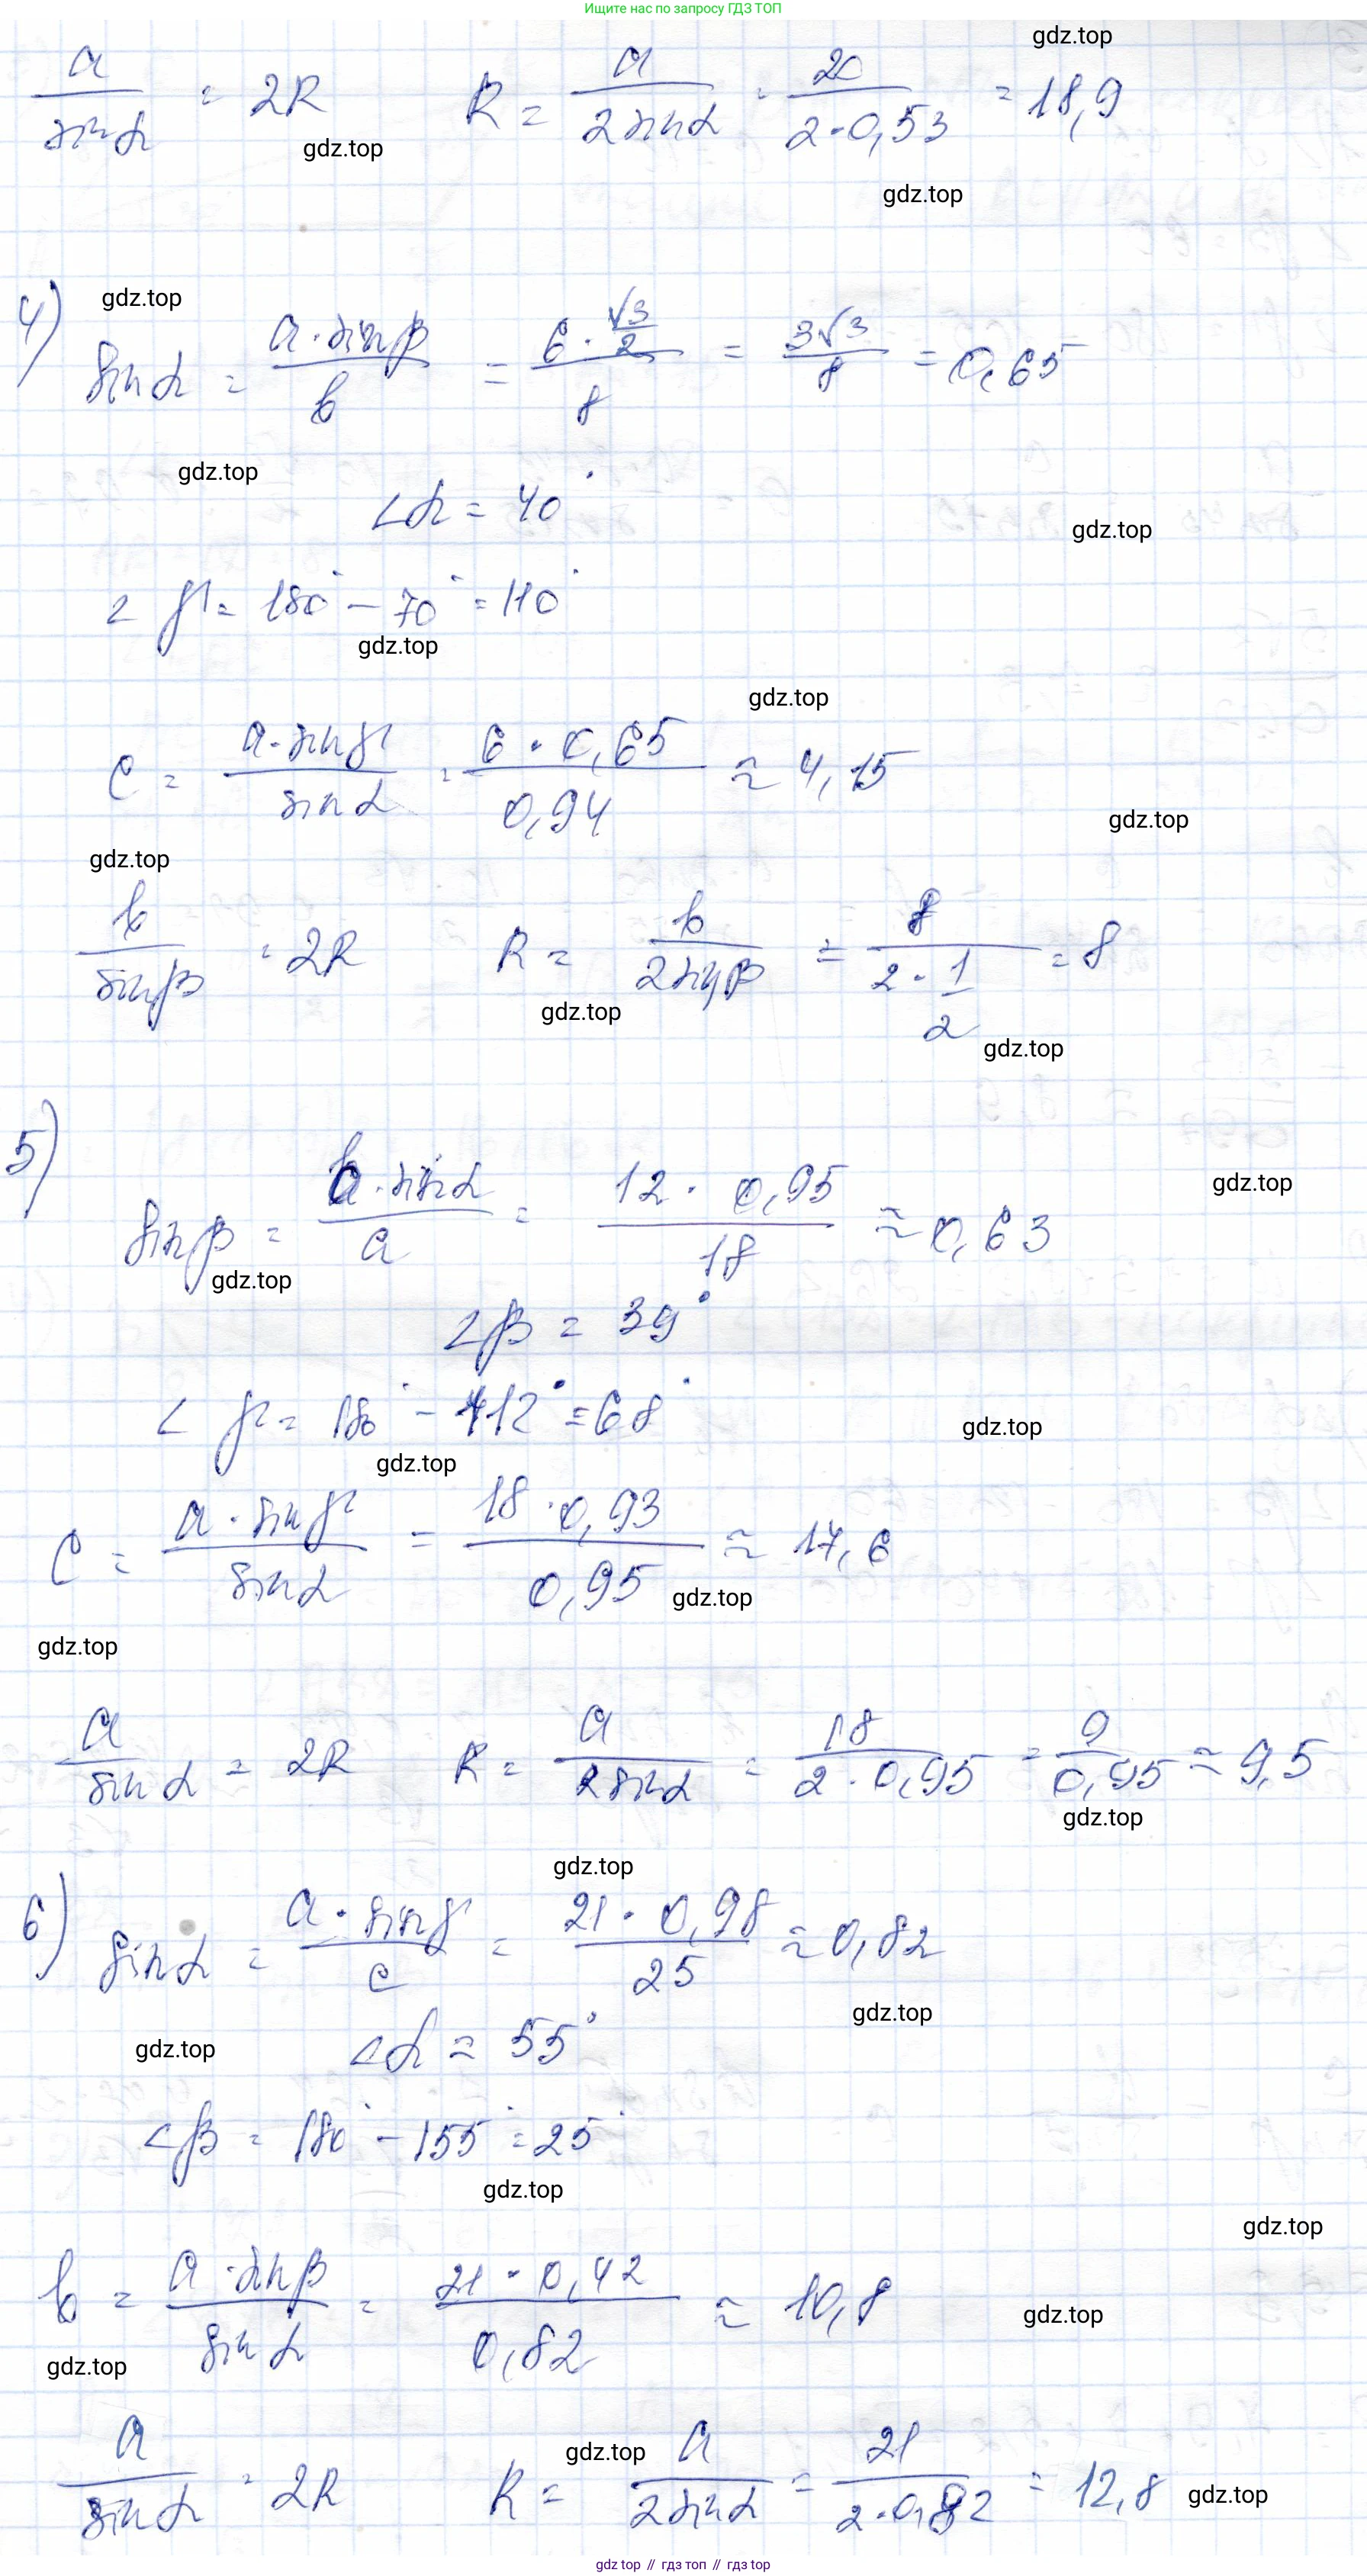 Ищите нас по запросу ГДЗ ТОП
gdz.top
a/sin α = 2R R = a/(2 sin α) = 20/(2·0,53) = 18,9
gdz.top
gdz.top
gdz.top
4) sin α = (a·sin β)/b = (6·√3/2)/8 = 3√3/8 = 0,65
gdz.top
∠α = 40°
gdz.top
∠γ = 180° - 70° = 110°
gdz.top
gdz.top
c = (a·sin γ)/sin α = (6·0,65)/0,94 ≈ 4,15
gdz.top
gdz.top
b/sin β = 2R R = b/(2 sin β) = 8/(2·1/2) = 8
gdz.top
gdz.top
5) sin β = (b·sin α)/a = (12·0,95)/18 ≈ 0,63
gdz.top
gdz.top
∠β = 39°
∠γ = 180° - 112° = 68°
gdz.top
gdz.top
c = (a·sin γ)/sin α = (18·0,93)/0,95 ≈ 17,6
gdz.top
gdz.top
a/sin α = 2R R = a/(2 sin α) = 18/(2·0,95) = 9/0,95 ≈ 9,5
gdz.top
gdz.top
6) sin α = (a·sin γ)/c = (21·0,98)/25 ≈ 0,82
gdz.top
gdz.top
∠α ≈ 55°
∠β = 180° - 155° = 25°
gdz.top
gdz.top
b = (a·sin β)/sin α = (21·0,42)/0,82 ≈ 10,8
gdz.top
gdz.top
gdz.top
a/sin α = 2R R = a/(2 sin α) = 21/(2·0,82) = 12,8
gdz.top
gdz top // гдз топ // gdz top